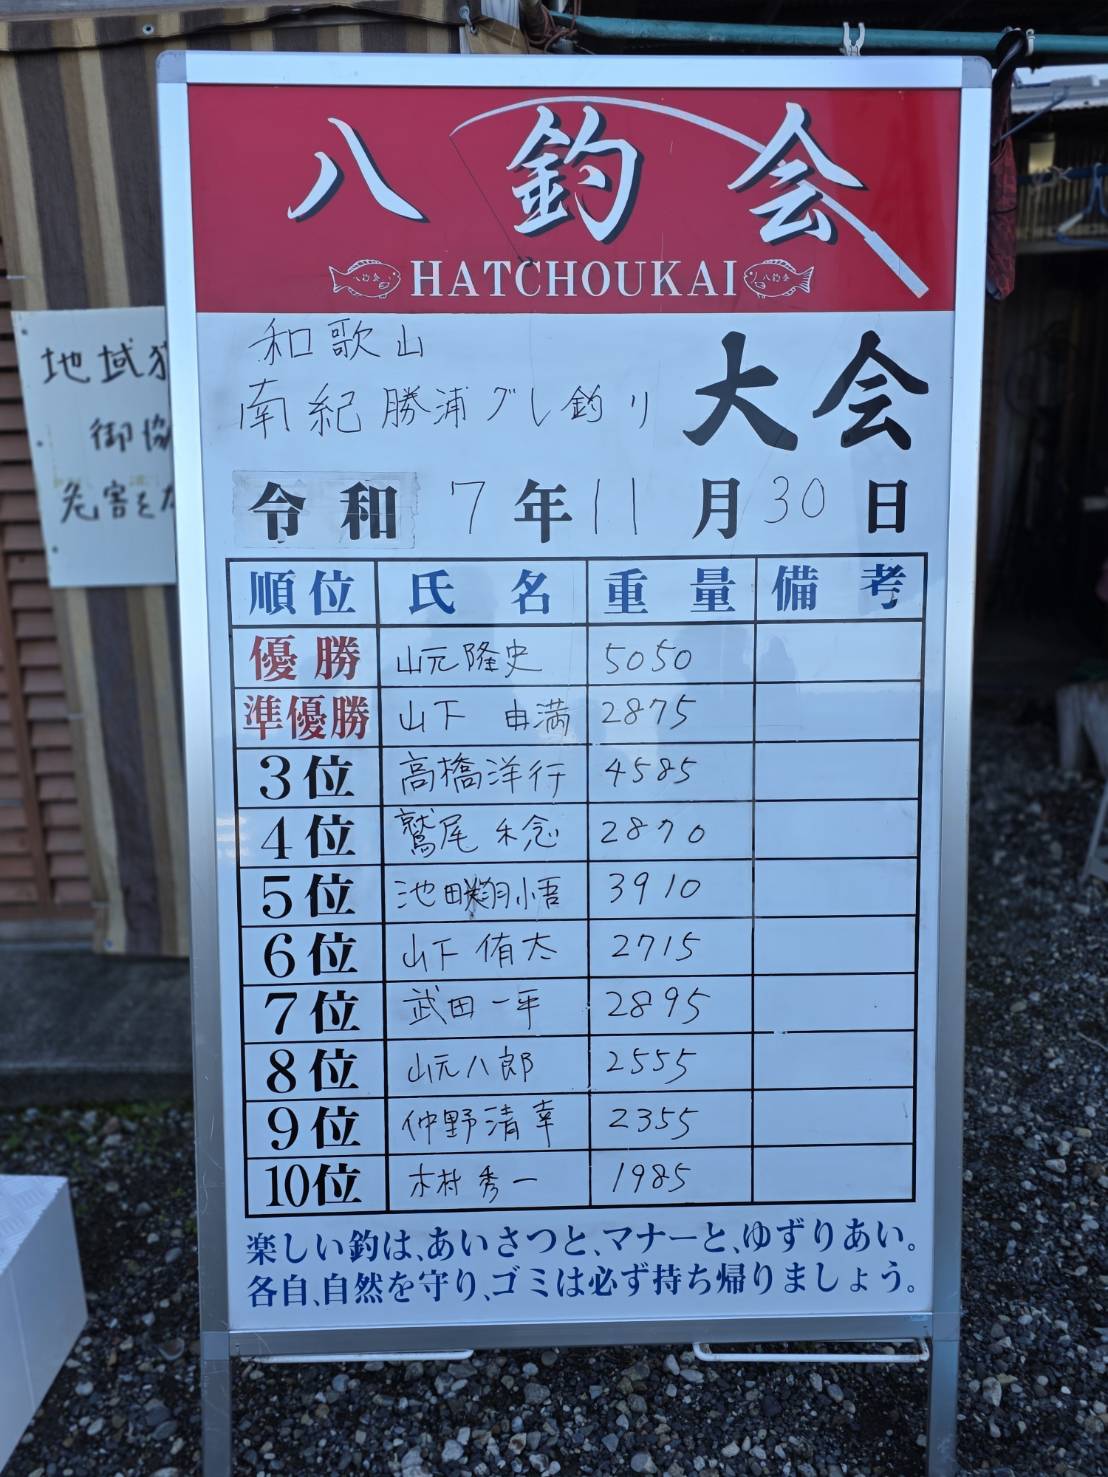 八釣会
HATCHOUKAI
和歌山
南紀勝浦グレ釣り 大会
令和7年11月30日
順位 氏名 重量 備考
優勝 山元隆史 5050
準優勝 山下 由満 2875
3位 高橋洋行 4585
4位 鷲尾 禾念 2870
5位 池田翔悟 3910
6位 山下侑太 2715
7位 武田一平 2895
8位 山元八郎 2555
9位 仲野清幸 2355
10位 木村秀一 1985
楽しい釣は、あいさつと、マナーと、ゆずりあい。
各自、自然を守り、ゴミは必ず持ち帰りましょう。
地域
御協
危害を